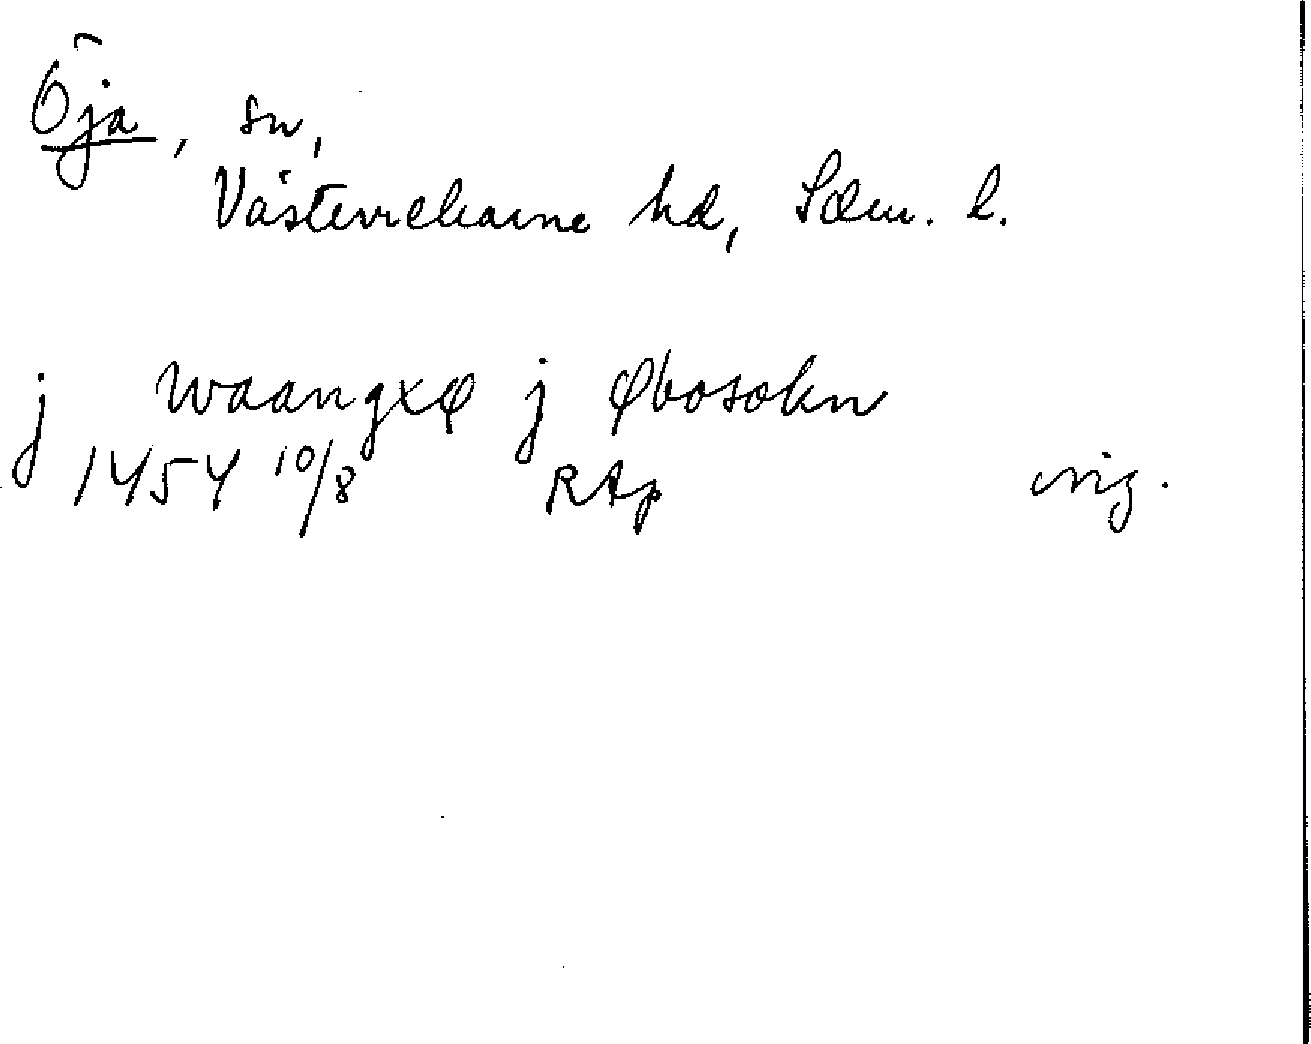 Öja, sn,
Västerrekarne hd, Södm. l.
j waangxø j Øbosokn
1454 10/8 RAp orig.